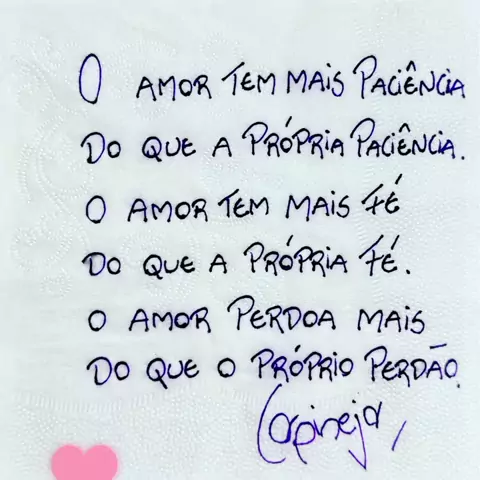 O AMOR TEM MAIS PACIÊNCIA
DO QUE A PRÓPRIA PACIÊNCIA.
O AMOR TEM MAIS FÉ
DO QUE A PRÓPRIA FÉ.
O AMOR PERDOA MAIS
DO QUE O PRÓPRIO PERDÃO.
Carpinejar